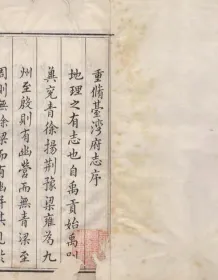 重脩臺灣府志序
地理之有志也自禹貢始禹以
冀兗青徐揚荊豫梁雍為九
州至殷則有幽營而無青梁至
周則無徐梁而有幽并其見於